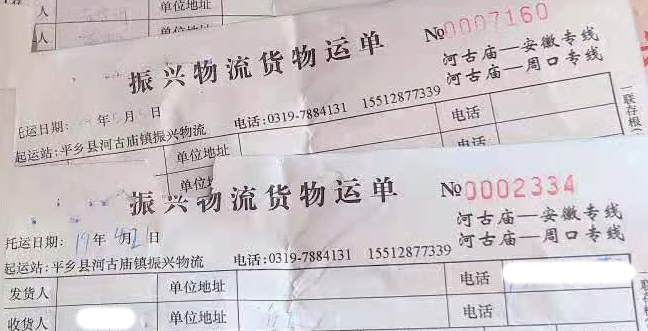 人 单位地址
人 单位地址
振兴物流货物运单 №0007160
河古庙—安徽专线
河古庙—周口专线
托运日期: 年 月 日
电话:0319-7884131 15512877339
起运站:平乡县河古庙镇振兴物流
单位地址 电话
单位 电话
一联存根(
振兴物流货物运单 №0002334
河古庙—安徽专线
河古庙—周口专线
托运日期: 19年4月21日
起运站:平乡县河古庙镇振兴物流 电话:0319-7884131 15512877339
发货人 单位地址 电话
收货人 单位地址 电话
一联存根